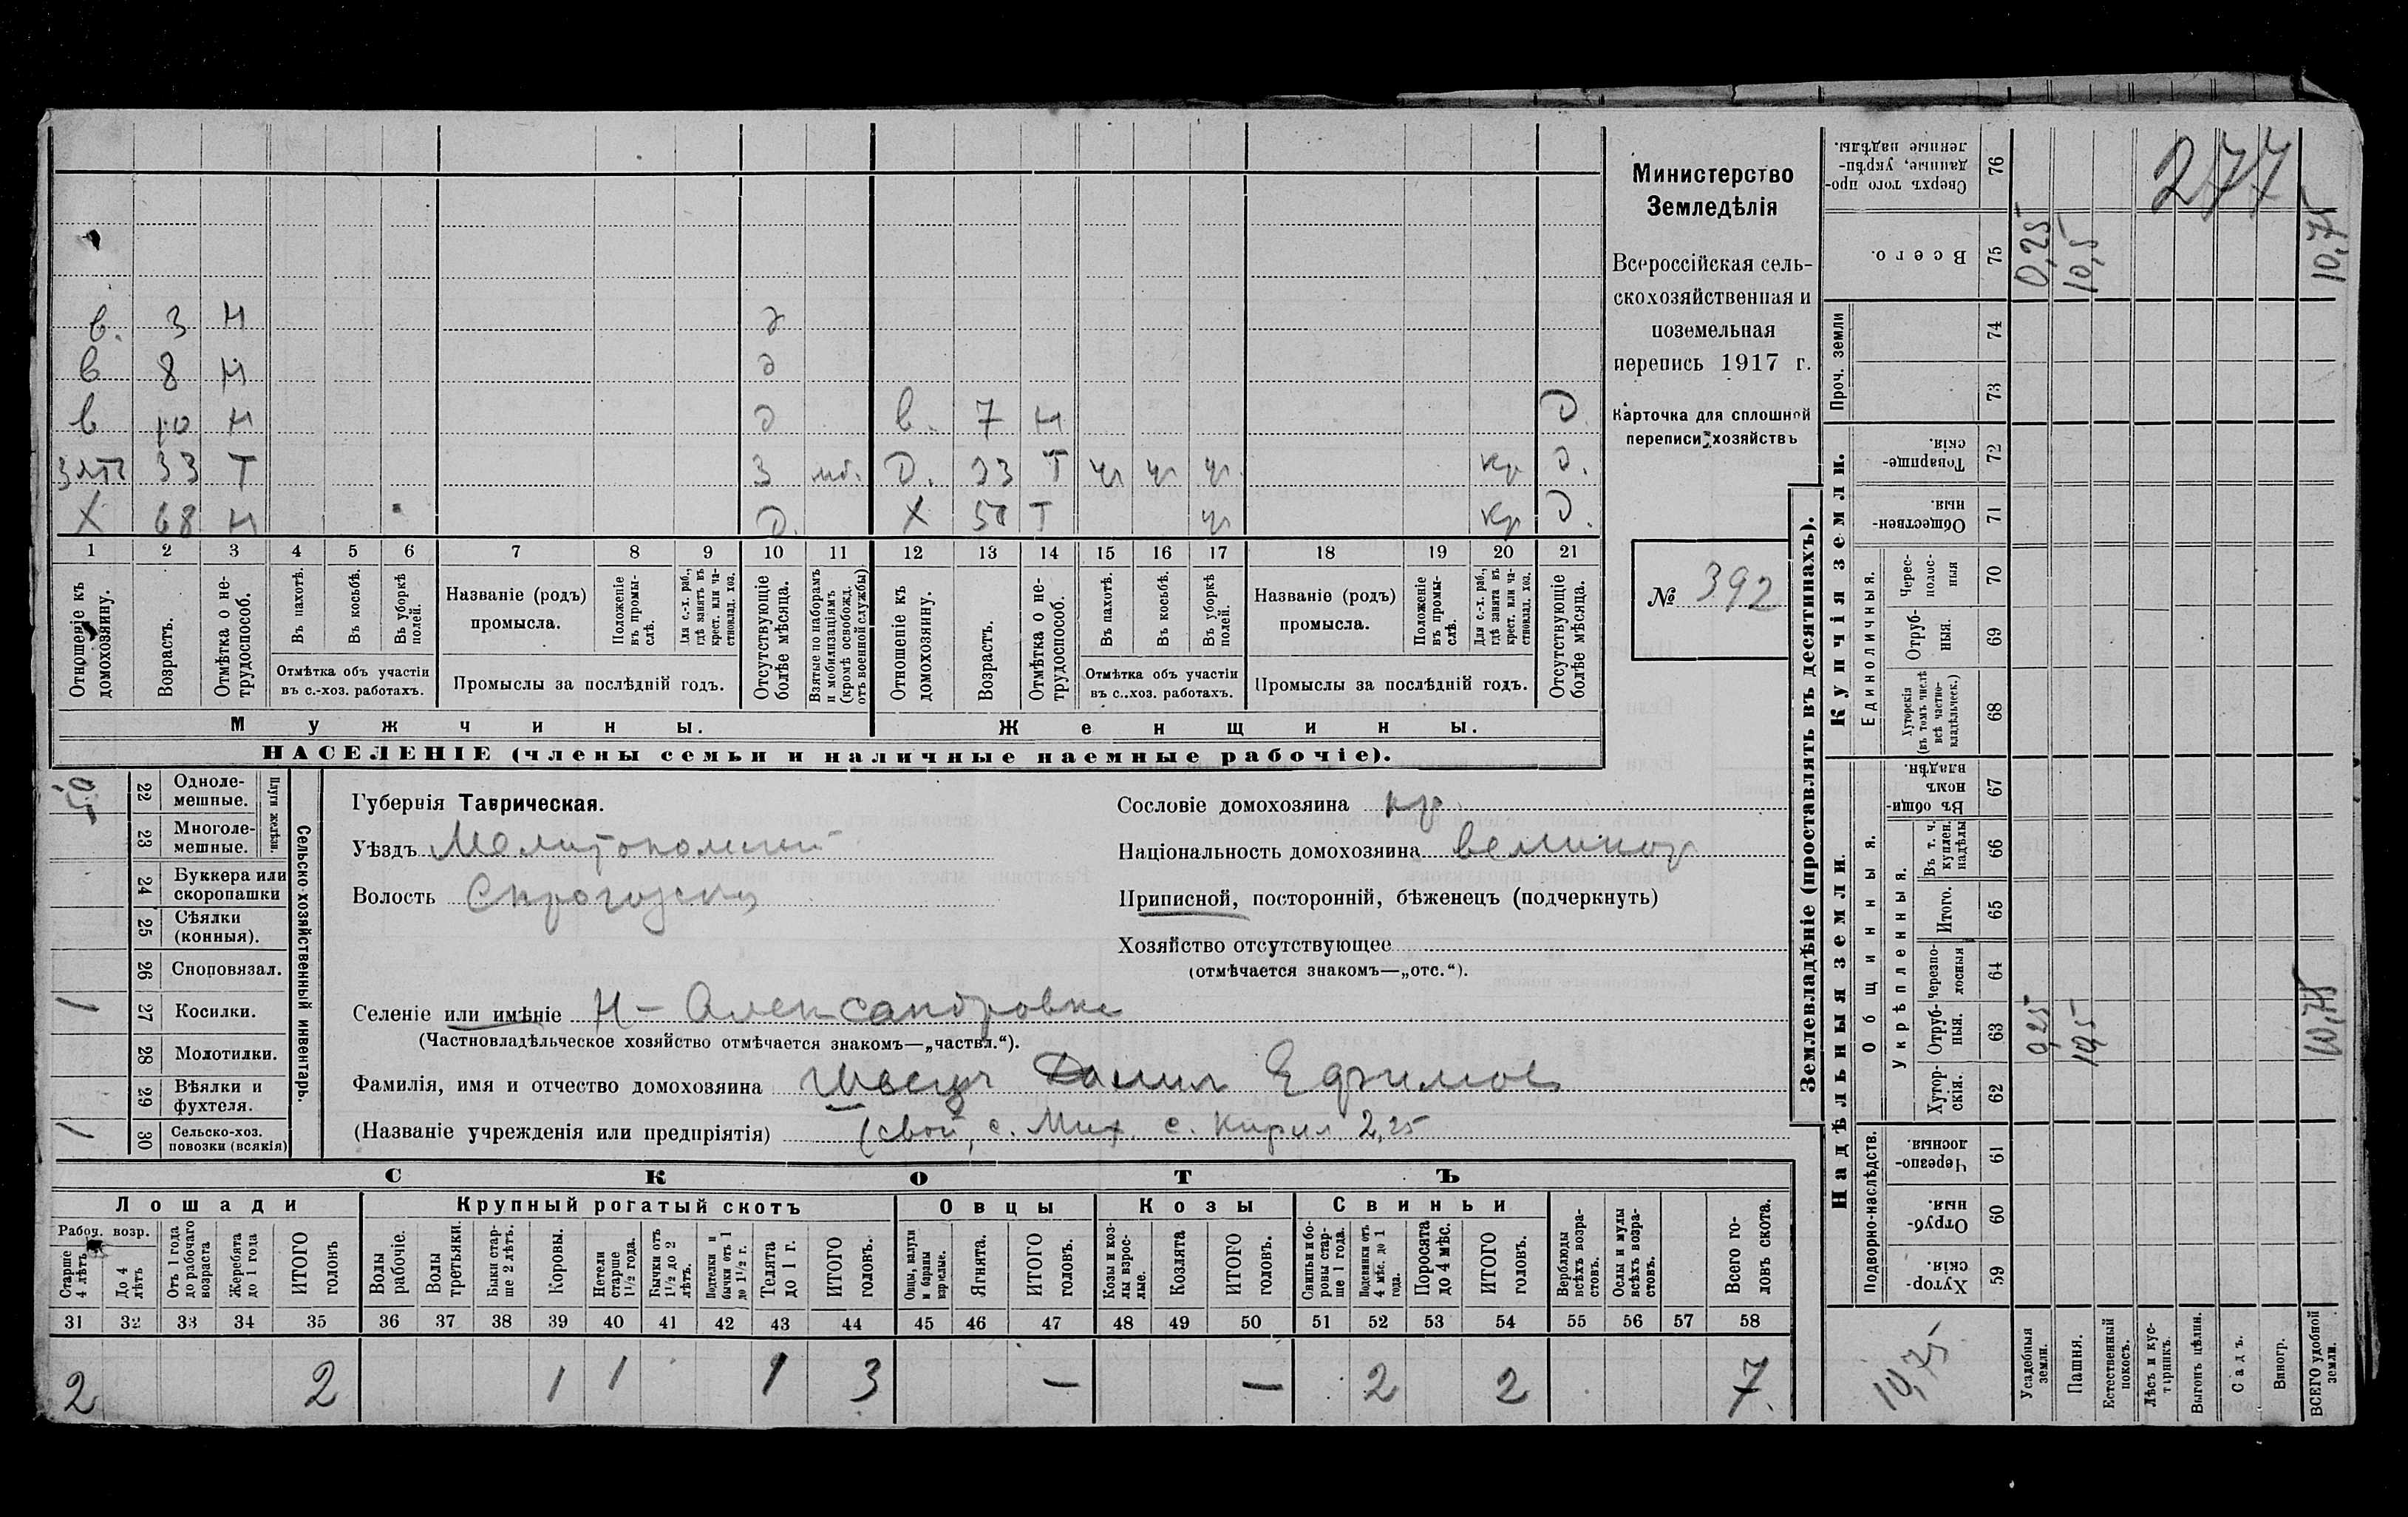 277
в. 3 н д
в 8 н д
в 10 н д в. 7 н д
зять 33 т 3 мб. д. 33 т ч ч ч кр д.
Х 68 н д. Х т ч кр д.
1 2 3 4 5 6 7 8 9 10 11 12 13 14 15 16 17 18 19 20 21
Отношеніе къ домохозяину.
Возрастъ.
Отмѣтка о не-
трудоспособ.
Въ пахотѣ.
Въ косьбѣ.
Въ уборкѣ
полей.
Отмѣтка объ участіи
въ с.-хоз. работахъ.
Названіе (родъ)
промысла.
Положеніе
въ промы-
слѣ.
Для с.-х. раб.,
гдѣ занятъ въ
крест. или ча-
стновлад. хоз.
Промыслы за послѣдній годъ.
Отсутствующіе
болѣе мѣсяца.
Взятые по наборамъ
и мобилизаціямъ
(кромѣ освобожд.
отъ военной службы)
Отношеніе къ
домохозяину.
Возрастъ.
Отмѣтка о не-
трудоспособ.
Въ пахотѣ.
Въ косьбѣ.
Въ уборкѣ
полей.
Отмѣтка объ участіи
въ с..хоз. работахъ.
Названіе (родъ)
промысла.
Положеніе
въ промы-
слѣ.
Для с.-х. раб.,
гдѣ занята въ
крест. или ча-
стновлад. хоз.
Промыслы за послѣдній годъ.
Отсутствующіе
болѣе мѣсяца.
Мужчины.
Женщины.
НАСЕЛЕНІЕ (члены семьи и наличные наемные рабочіе).
Министерство
Земледѣлія
Всероссійская сель-
скохозяйственная и
поземельная
перепись 1917 г.
Карточка для сплошной
переписи хозяйствъ
№ 392
22 Одноле-
мешные.
23 Многоле-
мешные.
Плуги желѣзн.
24 Буккера или
скоропашки
25 Сѣялки
(конныя).
26 Сноповязал.
1 27 Косилки.
28 Молотилки.
29 Вѣялки и
фухтеля.
1 30 Сельско-хоз.
повозки (всякія)
Сельско-хозяйственный инвентарь.
Губернія Таврическая.
Уѣздъ Мелитопольский
Волость
Селеніе или имѣніе Н-Александровка
(Частновладѣльческое хозяйство отмѣчается знакомъ—„частвл.“).
Фамилія, имя и отчество домохозяина Швецъ Данил Ефимов
(Названіе учрежденія или предпріятія) (свой, с. Мих. с. Кирил 2,25
Сословіе домохозяина кр.
Національность домохозяина великор
Приписной, посторонній, бѣженецъ (подчеркнуть)
Хозяйство отсутствующее
(отмѣчается знакомъ—„отс.“).
СКОТЪ
Лошади
Крупный рогатый скотъ
Овцы
Козы
Свиньи
Рабоч. возр.
Старше
4 лѣтъ
До 4
лѣтъ
Отъ 1 года
до рабочаго
возраста
Жеребята
до 1 года
ИТОГО
головъ
Волы
рабочіе.
Волы
третьяки.
Быки стар-
ше 2 лѣтъ.
Коровы.
Нетели
старше
1½ года.
Бычки отъ
1½ до 2
лѣтъ.
Подтелки и
бычки отъ 1
до 1½ г.
Телята
до 1 г.
ИТОГО
головъ.
Овцы, валухи
и бараны
взрослые.
Ягнята.
ИТОГО
головъ.
Козы и коз-
лы взрос-
лые.
Козлята
ИТОГО
головъ.
Свиньи и бо-
ровы стар-
ше 1 года.
Подсвинки отъ
4 мѣс. до 1
года.
Поросята
до 4 мѣс.
ИТОГО
головъ.
Верблюды
всѣхъ возра-
стовъ.
Ослы и мулы
всѣхъ возра-
стовъ.
Всего го-
ловъ скота.
31 32 33 34 35 36 37 38 39 40 41 42 43 44 45 46 47 48 49 50 51 52 53 54 55 56 57 58
2 2 1 1 1 3 — — 2 2 7
Землевладѣніе (проставлять въ десятинахъ).
Надѣльныя земли.
Купчія земли.
Проч. земли
Подворно-наслѣдств.
Общинныя.
Укрѣпленныя.
Единоличныя.
Сверхъ того про-
данные, укрѣп-
ленные надѣлы.
76
Всего.
75 0,25 10,5 10,75
74
73
Товарище-
скія.
72
Обществен-
ныя
71
Черес-
полос-
ныя
70
Отруб-
ныя.
69
Хуторскія
(въ томъ числѣ
всѣ частно-
владѣльческ.)
68
Въ общи-
номъ
владѣн.
67
Въ т. ч.
куплен.
надѣлы
66
Итого.
65
Черезпо-
лосныя
64
Отруб-
ныя.
63 0,25 10,5 10,75
Хутор-
скія.
62
Черезпо-
лосныя.
61
Отруб-
ныя.
60
Хутор-
скія.
59
10,75
Усадебныя
земли.
Пашня.
Естественный
покосъ.
Лѣсъ и кус-
тарникъ.
Выгонъ цѣлин.
Садъ.
Виногр.
ВСЕГО удобной
земли.